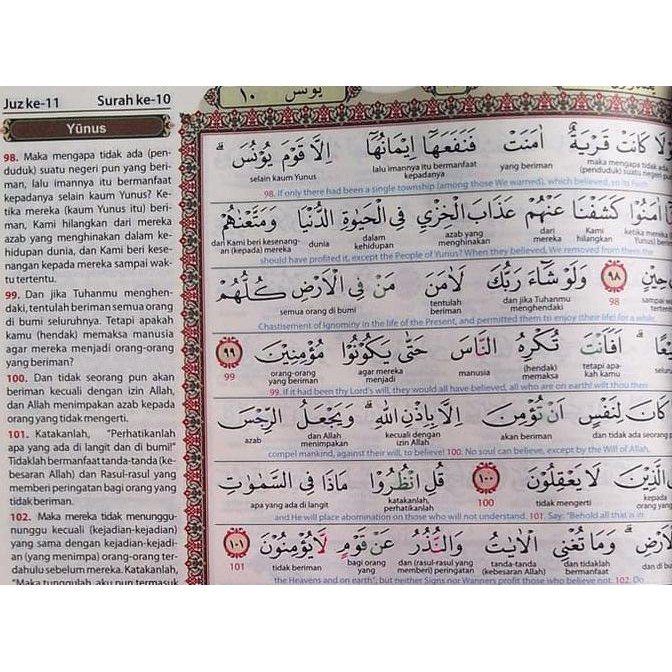 Juz ke-11 Surah ke-10
Yūnus
98. Maka mengapa tidak ada (pen-
duduk) suatu negeri pun yang beri-
man, lalu imannya itu bermanfaat
kepadanya selain kaum Yunus? Ke-
tika mereka (kaum Yunus itu) beri-
man, Kami hilangkan dari mereka
azab yang menghinakan dalam ke-
hidupan dunia, dan Kami beri kese-
nangan kepada mereka sampai wak-
tu tertentu.
99. Dan jika Tuhanmu menghen-
daki, tentulah beriman semua orang
di bumi seluruhnya. Tetapi apakah
kamu (hendak) memaksa manusia
agar mereka menjadi orang-orang
yang beriman?
100. Dan tidak seorang pun akan
beriman kecuali dengan izin Allah,
dan Allah menimpakan azab kepada
orang yang tidak mengerti.
101. Katakanlah, "Perhatikanlah
apa yang ada di langit dan di bumi!"
Tidaklah bermanfaat tanda-tanda (ke-
besaran Allah) dan Rasul-rasul yang
memberi peringatan bagi orang yang
tidak beriman.
102. Maka mereka tidak menunggu-
nunggu kecuali (kejadian-kejadian)
yang sama dengan kejadian-kejadi-
an (yang menimpa) orang-orang ter-
dahulu sebelum mereka. Katakanlah,
"Maka tunggulah, aku pun termasuk
يونس ١٠
كَانَتْ قَرْيَةٌ اٰمَنَتْ فَنَفَعَهَآ اِيْمَانُهَآ اِلَّا قَوْمَ يُوْنُسَۗ
maka mengapa tidak (penduduk) suatu negeri yang beriman lalu imannya itu bermanfaat kepadanya selain kaum Yunus
98. If only there had been a single township (among those We warned), which believed, so its
اٰمَنُوْا كَشَفْنَا عَنْهُمْ عَذَابَ الْخِزْيِ فِى الْحَيٰوةِ الدُّنْيَا وَمَتَّعْنٰهُمْ
ketika mereka Kami hilangkan dari mereka azab yang menghinakan dalam kehidupan dunia dan Kami beri kesenang-an (kepada) mereka
should have profited it, except the People of Yunus? When they believed, We removed from them the
حِيْنٍ ٩٨ وَلَوْ شَاۤءَ رَبُّكَ لَاٰمَنَ مَنْ فِى الْاَرْضِ كُلُّهُمْ
98 dan jika Tuhanmu menghendaki tentulah beriman semua orang di bumi
Chastisement of Ignominy in the life of the Present, and permitted them to enjoy (their life) for a while.
اَفَاَنْتَ تُكْرِهُ النَّاسَ حَتّٰى يَكُوْنُوْا مُؤْمِنِيْنَ ٩٩
tetapi apa-kah kamu (hendak) memaksa manusia agar mereka menjadi orang-orang yang beriman 99
99. If it had been thy Lord's will, they would all have believed, all who are on earth! wilt thou then
كَانَ لِنَفْسٍ اَنْ تُؤْمِنَ اِلَّا بِاِذْنِ اللّٰهِۗ وَيَجْعَلُ الرِّجْسَ
dan tidak ada akan beriman kecuali dengan izin Allah dan Allah menimpakan azab
compel mankind, against their will, to believe! 100. No soul can believe, except by the Will of Allah,
الَّذِيْنَ لَا يَعْقِلُوْنَ ١٠٠ قُلِ انْظُرُوْا مَاذَا فِى السَّمٰوٰتِ
kepada orang tidak mengerti 100 katakanlah, perhatikanlah apa yang ada di langit
and He will place abomination on those who will not understand. 101. Say: "Behold all that is in
وَمَا تُغْنِى الْاٰيٰتُ وَالنُّذُرُ عَنْ قَوْمٍ لَّا يُؤْمِنُوْنَ ١٠١
dan tidaklah bermanfaat tanda-tanda (kebesaran Allah) dan (rasul-rasul yang memberi) peringatan bagi orang yang tidak beriman 101
the Heavens and on earth", but neither Signs nor Wanners profit those who believe not. 102. Do